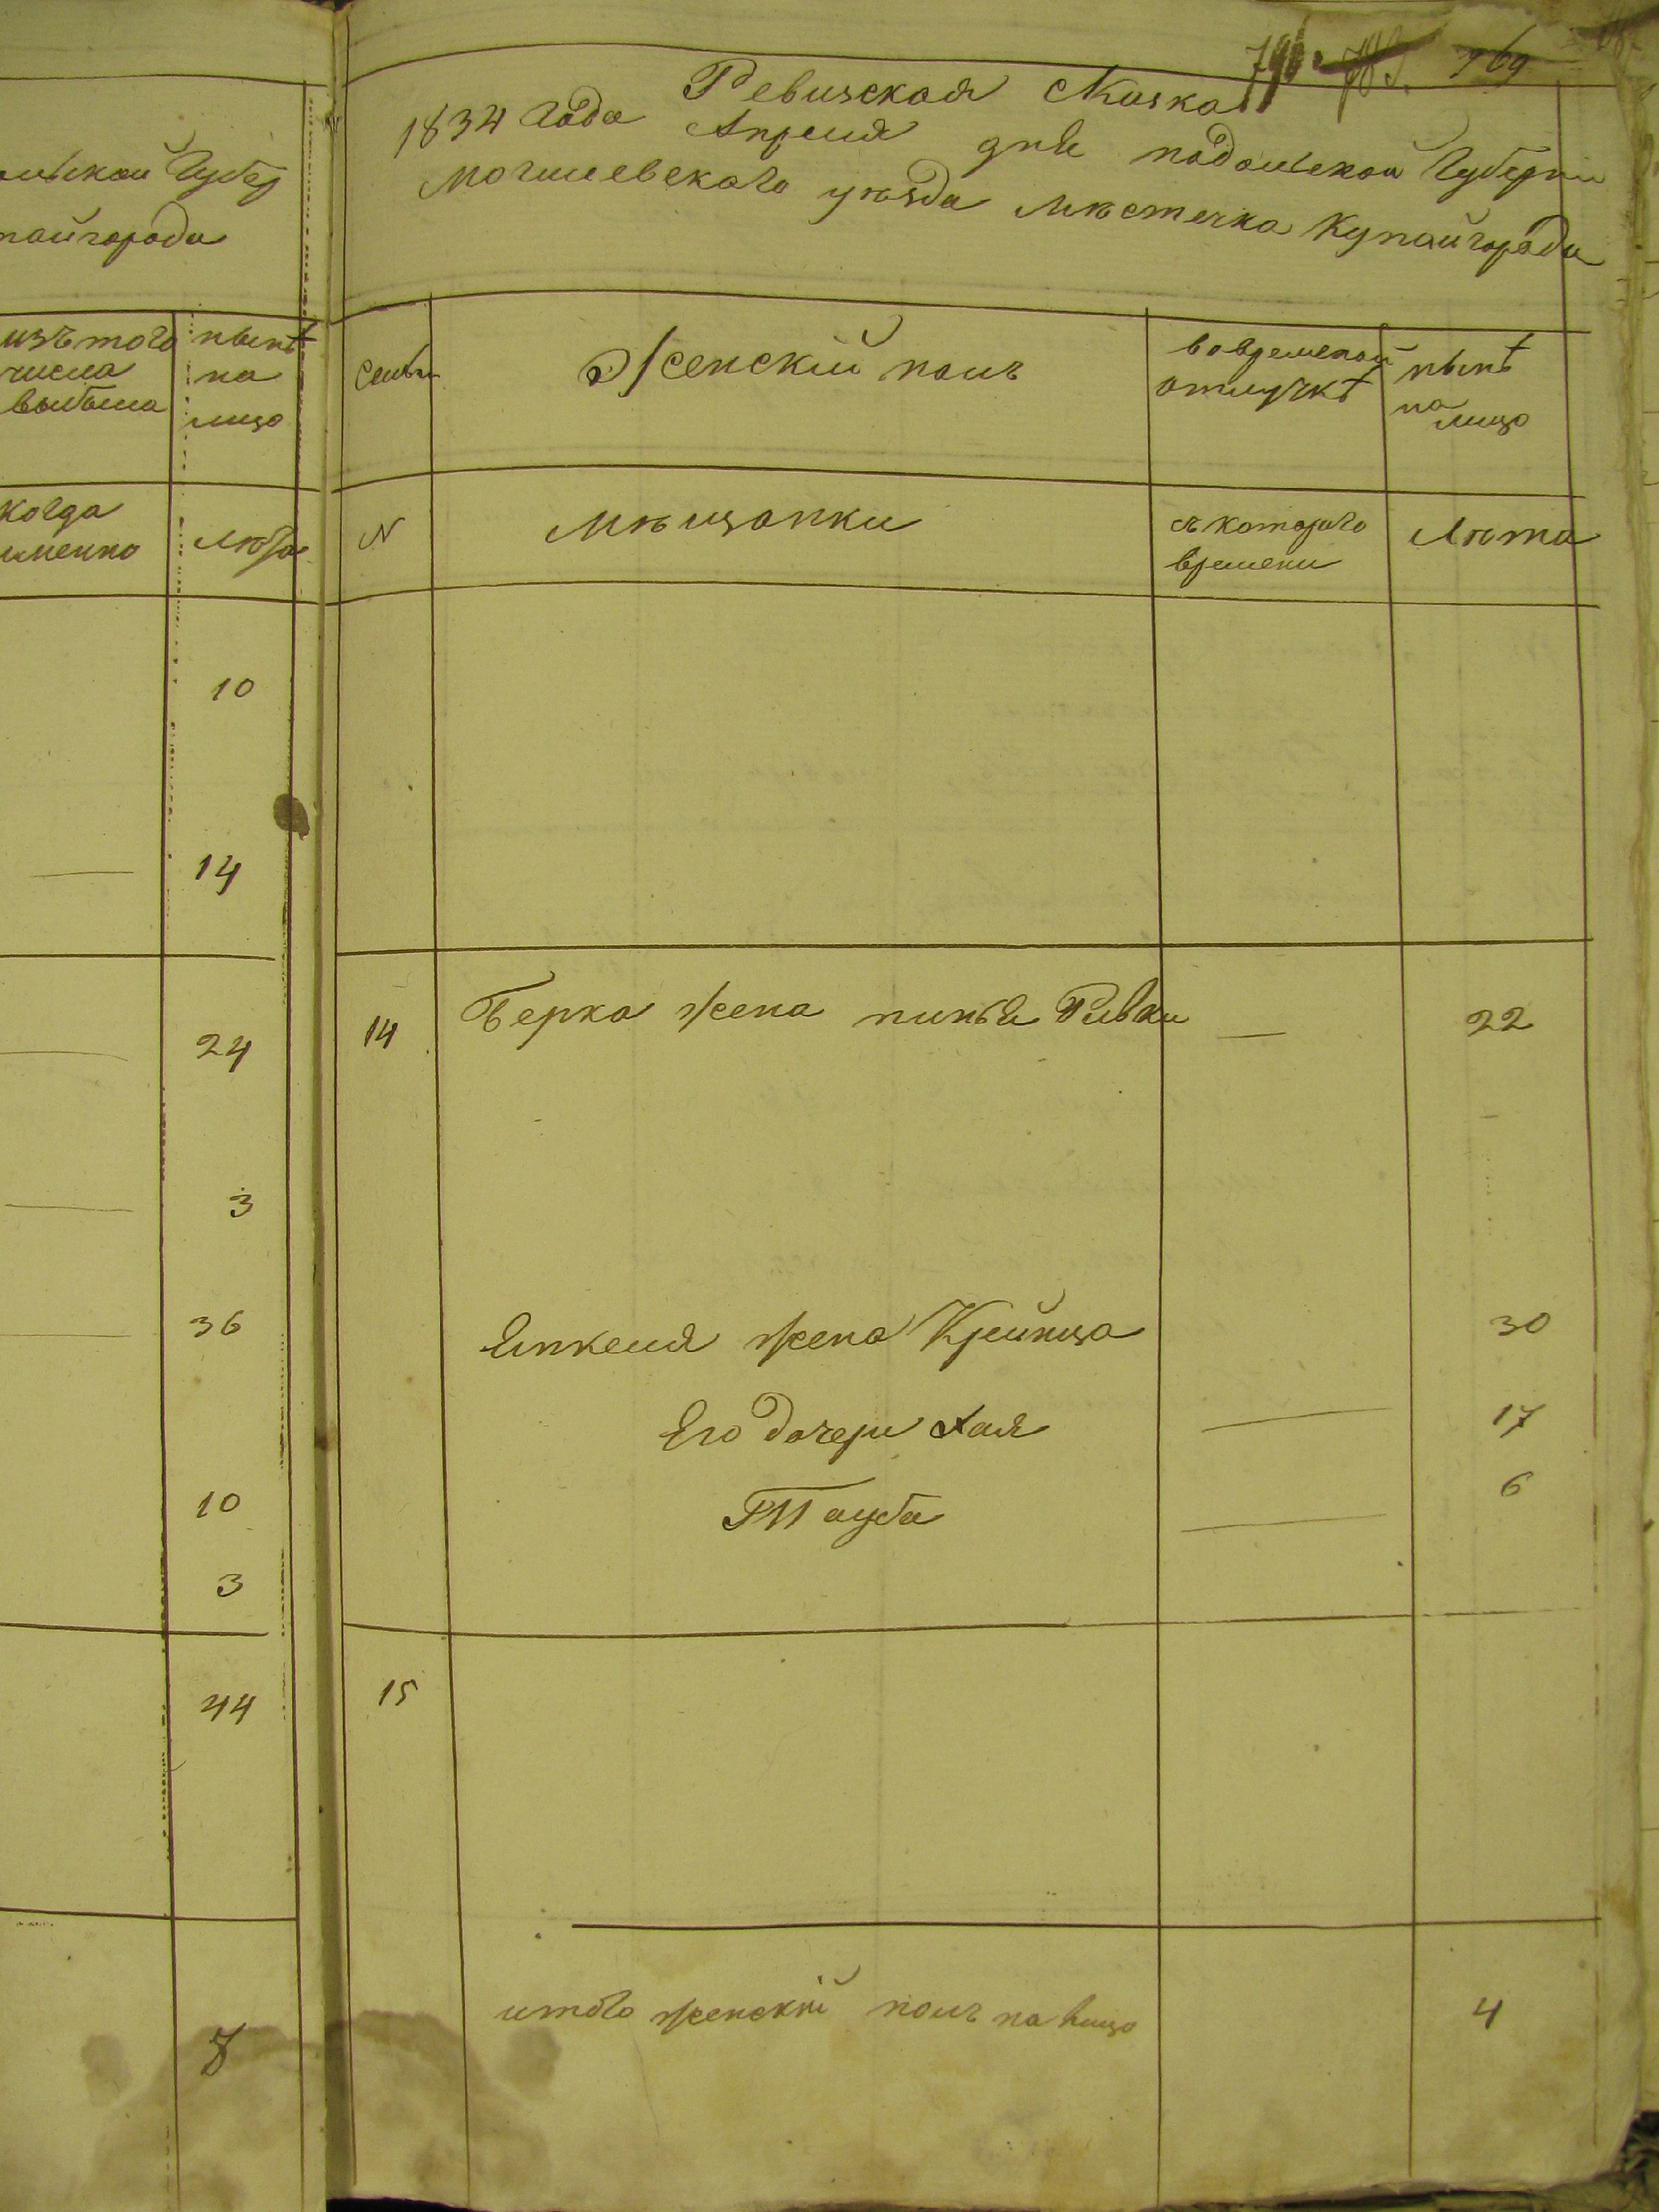 мьской Губер
пайгорода
изъ того числа выбыла
нынѣ на лицо
когда именно
Лѣта
10
14
24
3
36
10
3
44
8
796. 782. 769
Ревизская Скаска
1834 Года Апреля дня подольской Губернии
Могилевского уѣзда мѣстечка Купайгорода
Семьи
Женскій полъ
во временой отлучкѣ
нынѣ на лицо
N
Мѣщанки
съ которого времени
Лѣта
14 Берка жена Ривки — 22
Янкеля жена Крейнца 30
Его дочери Хая — 17
Тауба — 6
15
итого женскій полъ на лицо 4